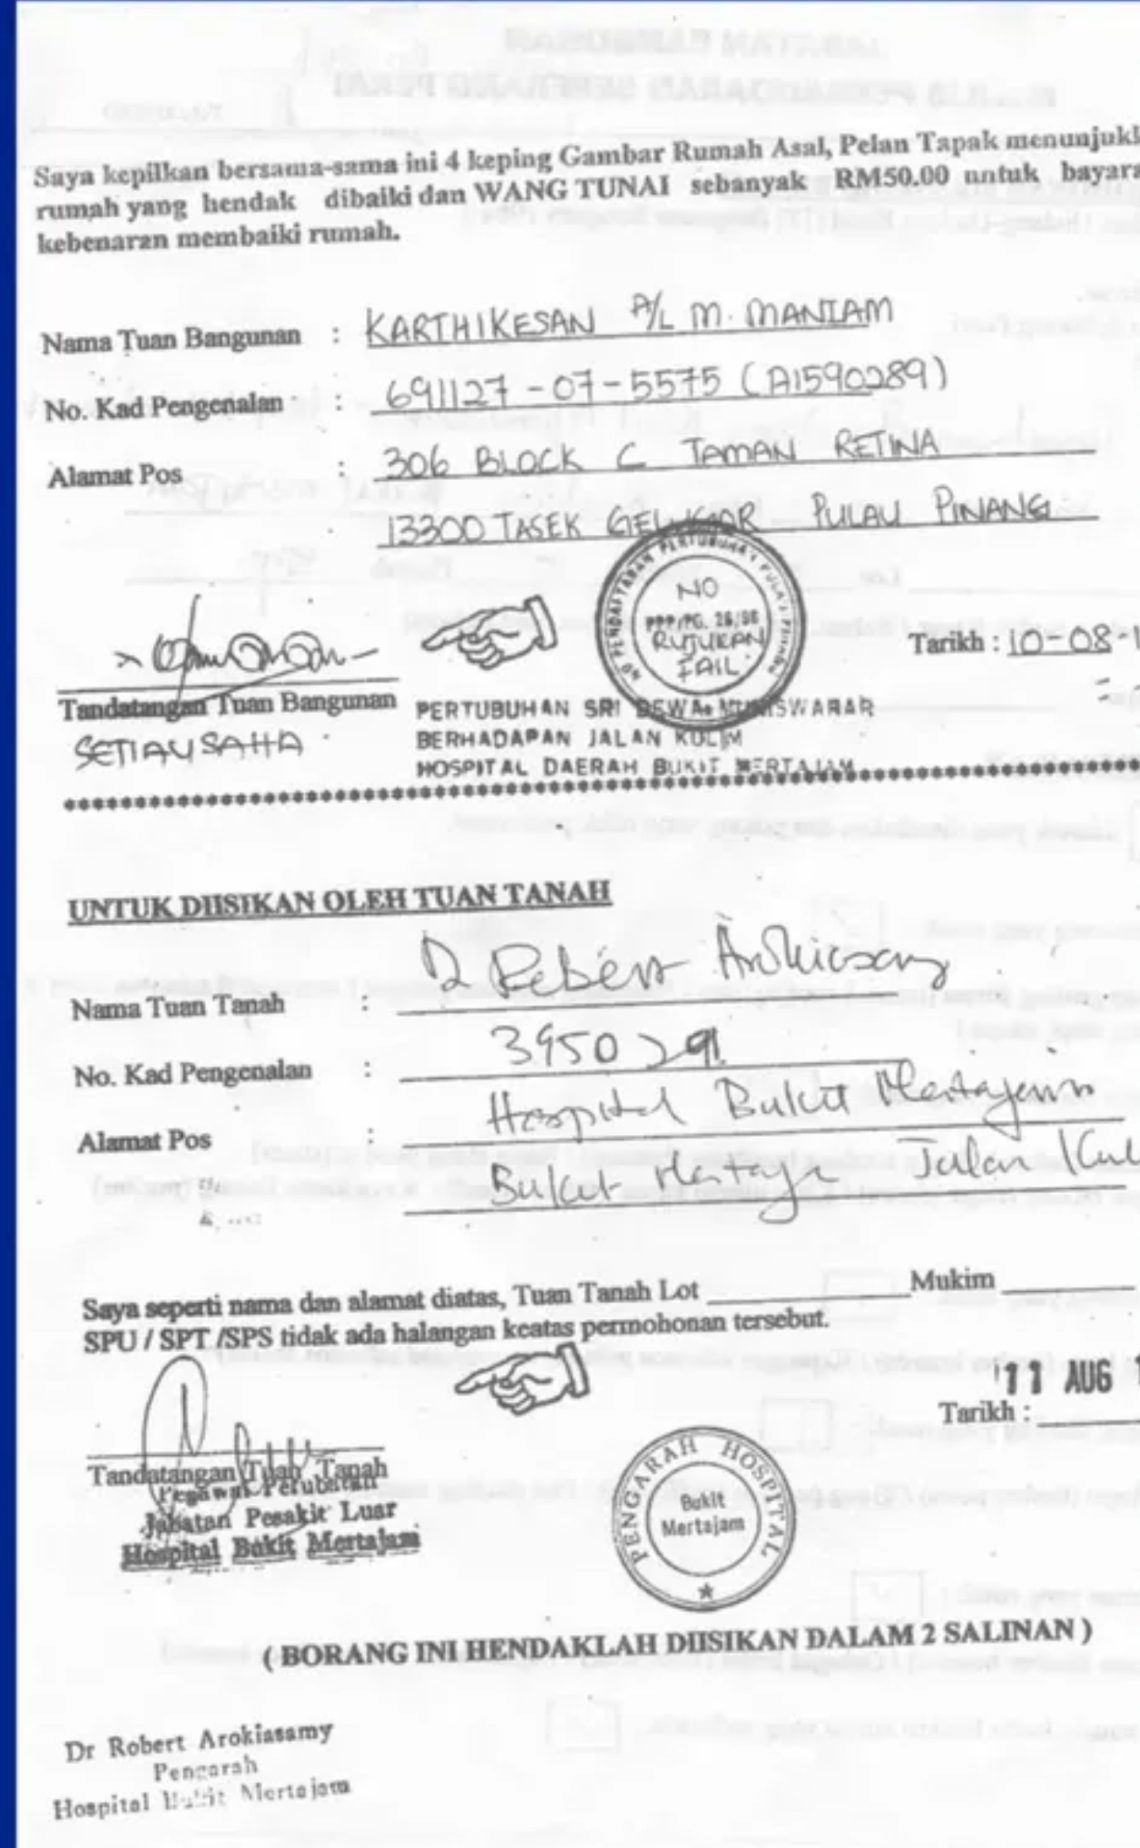 Saya kepilkan bersama-sama ini 4 keping Gambar Rumah Asal, Pelan Tapak menunjukk
rumah yang hendak dibaiki dan WANG TUNAI sebanyak RM50.00 untuk bayara
kebenaran membaiki rumah.
Nama Tuan Bangunan : KARTHIKESAN A/L M. MANIAM
No. Kad Pengenalan : 691127-07-5575 (A1590289)
Alamat Pos : 306 BLOCK C TAMAN RETINA
13300 TASEK GELUGOR PULAU PINANG
NO PENDAFTARAN PERTUBUHAN PULAU PINANG
NO
PPP/PG. 26/86
RUJUKAN
FAIL
Tarikh : 10-08-1
Tandatangan Tuan Bangunan
SETIAUSAHA
PERTUBUHAN SRI DEWA MUNISWARAR
BERHADAPAN JALAN KULIM
HOSPITAL DAERAH BUKIT MERTAJAM
UNTUK DIISIKAN OLEH TUAN TANAH
Nama Tuan Tanah : Dr Robert Arokiasamy
No. Kad Pengenalan : 3950291
Alamat Pos : Hospital Bukit Mertajam
Bukit Mertaja Jalan Kul
Saya seperti nama dan alamat diatas, Tuan Tanah Lot Mukim
SPU / SPT /SPS tidak ada halangan keatas permohonan tersebut.
11 AUG 1
Tarikh :
Tandatangan Tuan Tanah
Pegawai Perubatan
Jabatan Pesakit Luar
Hospital Bukit Mertajam
PENGARAH HOSPITAL
Bukit
Mertajam
( BORANG INI HENDAKLAH DIISIKAN DALAM 2 SALINAN )
Dr Robert Arokiasamy
Pengarah
Hospital Bukit Mertajam